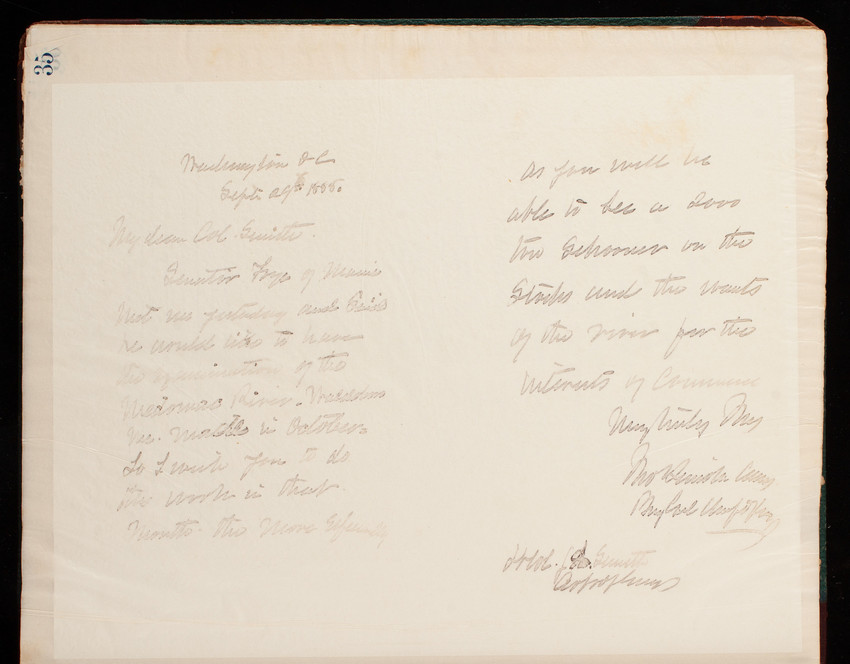 35
Washington D C
Sept 29th 1888.
My dear Col. Smith.
Senator Frye of Maine
Met me yesterday and said
he would like to have
the examination of the
Medomac River. Waldoboro
Me. Made in October.
So I wish you to do
the work in that
Month - the More Especially
as you will be
able to see a 2000
ton Schooner on the
Stocks and the wants
of the river for the
interests of Commerce
Very truly Yrs
Thos
Lt Col. Smith
Corps of Engrs